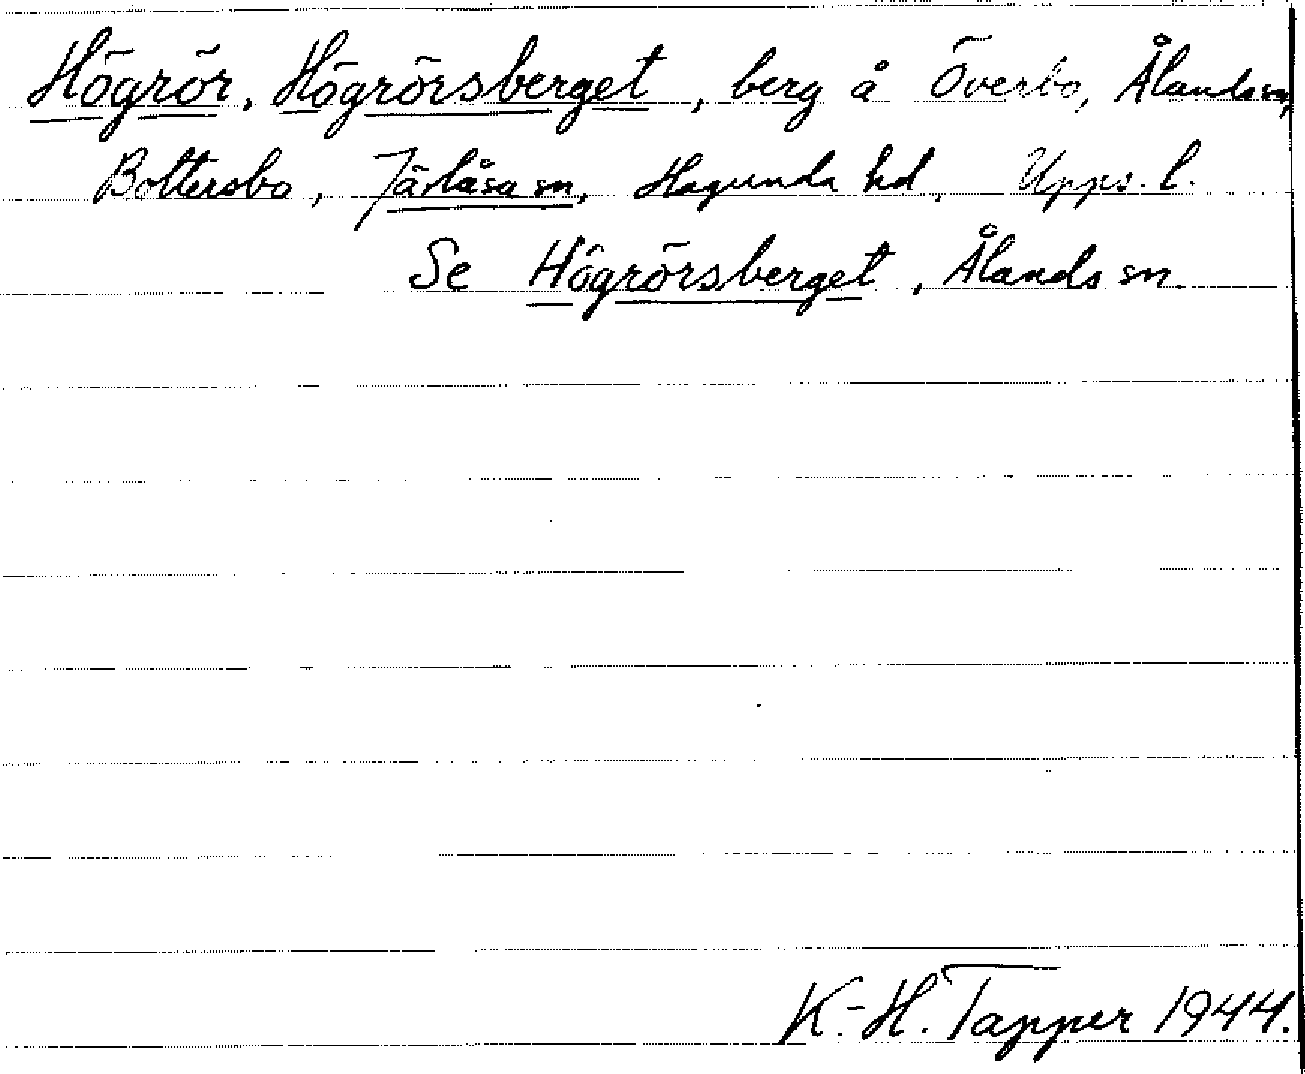 Högrör, Högrörsberget, berg å Överbo, Ålands sn,
Bottersbo, Järlåsa sn, Hagunda hd, Upps. l.
Se Högrörsberget, Ålands sn.
K.-H. Tapper 1944.